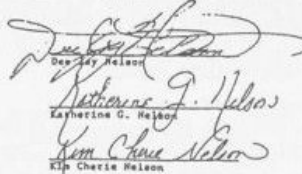 Dee Jay Nelson
Dee Jay Nelson
Katherine G. Nelson
Katherine G. Nelson
Kim Cherie Nelson
Kim Cherie Nelson